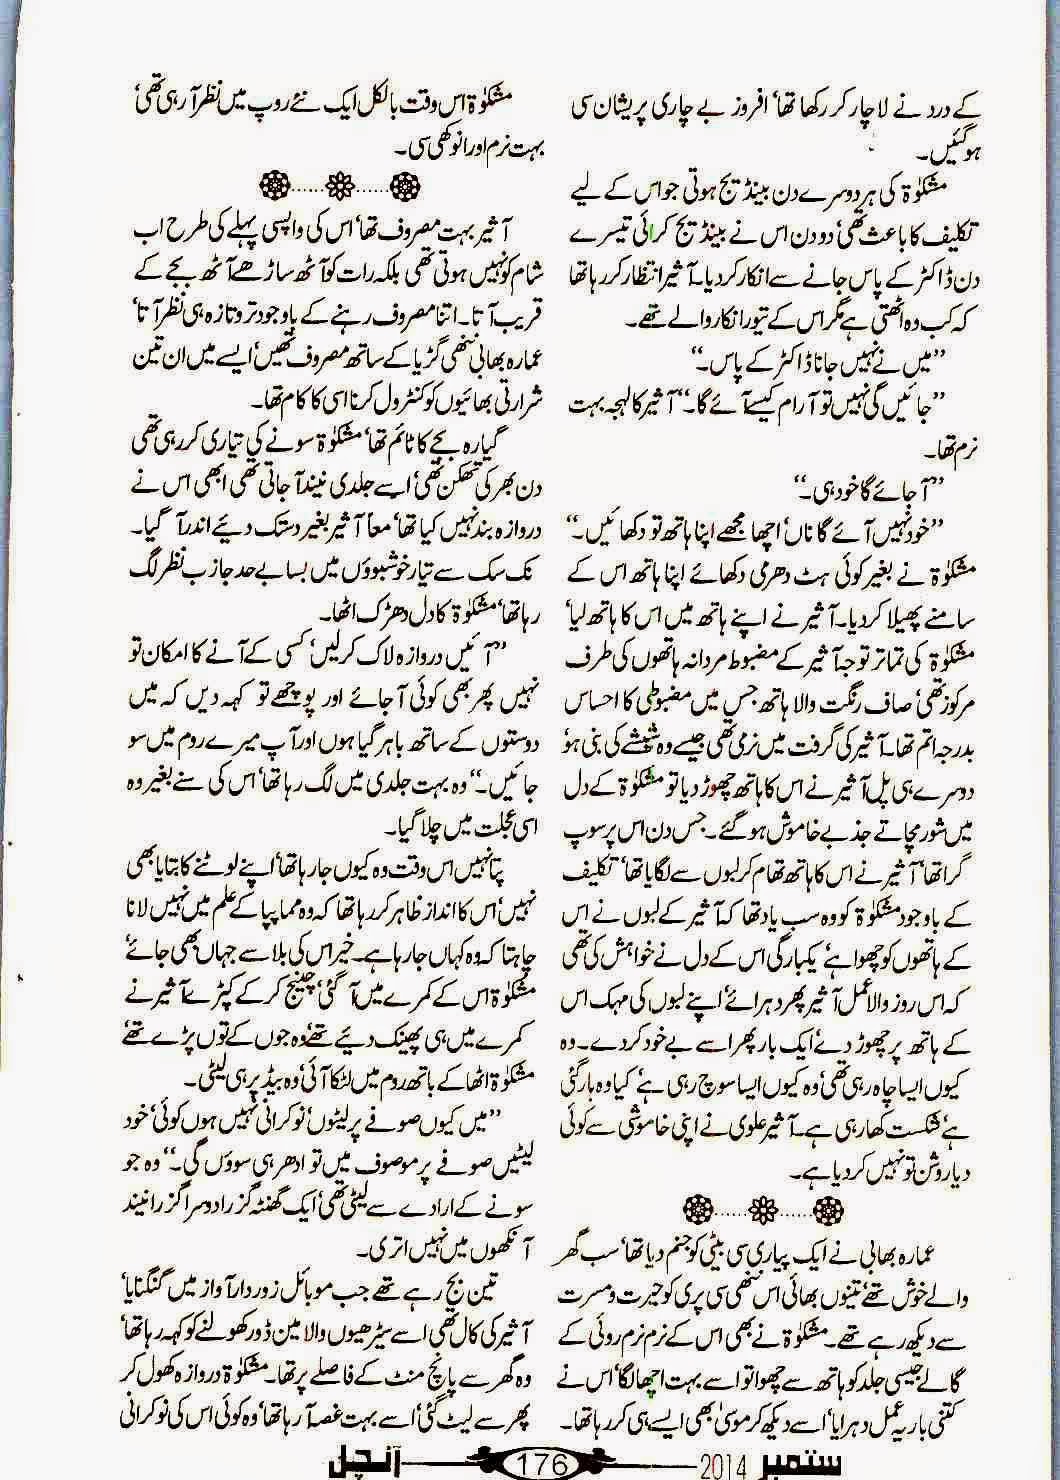 کے درد نے لاچار کر رکھا تھا‘ افروز بے چاری پریشان سی
ہوگئیں۔
مشکوٰۃ کی ہر دوسرے دن بینڈیج ہوتی جو اس کے لیے
تکلیف کا باعث تھی‘ دو دن اس نے بینڈیج کرائی تیسرے
دن ڈاکٹر کے پاس جانے سے انکار کردیا۔ آشیر انتظار کر رہا تھا
کہ کب وہ اٹھتی ہے مگر اس کے تیور انکار والے تھے۔
”میں نے نہیں جانا ڈاکٹر کے پاس۔“
”جائیں گی نہیں تو آرام کیسے آئے گا۔“ آشیر کا لہجہ بہت
نرم تھا۔
”آ جائے گا خود ہی۔“
”خود نہیں آئے گا ناں‘ اچھا مجھے اپنا ہاتھ تو دکھائیں۔“
مشکوٰۃ نے بغیر کوئی ہٹ دھرمی دکھائے اپنا ہاتھ اس کے
سامنے پھیلا کر دیا۔ آشیر نے اپنے ہاتھ میں اس کا ہاتھ لیا‘
مشکوٰۃ کی تمام تر توجہ آشیر کے مضبوط مردانہ ہاتھوں کی طرف
مرکوز تھی‘ صاف رنگت والا ہاتھ جس میں مضبوطی کا احساس
بدرجہ اتم تھا۔ آشیر کی گرفت میں نرمی تھی جیسے وہ شیشے کی بنی ہو‘
دوسرے ہی پل آشیر نے اس کا ہاتھ چھوڑ دیا تو مشکوٰۃ کے دل
میں شور مچاتے جذبے خاموش ہوگئے۔ جس دن اس پر سوپ
گرا تھا‘ آشیر نے اس کا ہاتھ تھام کر لبوں سے لگایا تھا‘ تکلیف
کے باوجود مشکوٰۃ کو وہ سب یاد تھا کہ آشیر کے لبوں نے اس
کے ہاتھوں کو چھوا ہے‘ یکبارگی اس کے دل نے خواہش کی تھی
کہ اس روز والا عمل آشیر پھر دہرائے‘ اپنے لبوں کی مہک اس
کے ہاتھ پر چھوڑ دے‘ ایک بار پھر اسے بے خود کردے۔ وہ
کیوں ایسا چاہ رہی تھی‘ وہ کیوں ایسا سوچ رہی ہے‘ کیا وہ ہار گئی
ہے‘ شکست کھا رہی ہے۔ آشیر علوی نے اپنی خاموشی سے کوئی
دیا روشن تو نہیں کردیا ہے۔
عمارہ بھابی نے ایک پیاری سی بیٹی کو جنم دیا تھا‘ سب گھر
والے خوش تھے‘ تینوں بھائی اس ننھی سی پری کو حیرت و مسرت
سے دیکھ رہے تھے۔ مشکوٰۃ نے بھی اس کے نرم نرم روئی کے
گالے جیسی جلد کو ہاتھ سے چھوا تو اسے بہت اچھا لگا‘ اس نے
کتنی بار یہ عمل دہرایا‘ اسے دیکھ کر موسیٰ بھی ایسے ہی کر رہا تھا۔
مشکوٰۃ اس وقت بالکل ایک نئے روپ میں نظر آرہی تھی‘
بہت نرم اور انوکھی سی۔
آشیر بہت مصروف تھا‘ اس کی واپسی پہلے کی طرح اب
شام کو نہیں ہوتی تھی بلکہ رات کو آٹھ ساڑھے آٹھ بجے کے
قریب آتا۔ اتنا مصروف رہنے کے باوجود تروتازہ ہی نظر آتا‘
عمارہ بھابی ننھی گڑیا کے ساتھ مصروف تھیں‘ ایسے میں ان تین
شرارتی بھائیوں کو کنٹرول کرنا اسی کا کام تھا۔
گیارہ بجے کا ٹائم تھا‘ مشکوٰۃ سونے کی تیاری کر رہی تھی
دن بھر کی تھکن تھی‘ اسے جلدی نیند آجاتی تھی ابھی اس نے
دروازہ بند نہیں کیا تھا‘ معاً آشیر بغیر دستک دیئے اندر آگیا۔
نک سک سے تیار خوشبوؤں میں بسا بے حد جاذب نظر لگ
رہا تھا‘ مشکوٰۃ کا دل دھڑک اٹھا۔
”آئیں دروازہ لاک کرلیں‘ کسی کے آنے کا امکان تو
نہیں پھر بھی کوئی آجائے اور پوچھے تو کہہ دیں کہ میں
دوستوں کے ساتھ باہر گیا ہوں اور آپ میرے روم میں سو
جائیں۔“ وہ بہت جلدی میں لگ رہا تھا‘ اس کی سنے بغیر وہ
اسی عجلت میں چلا گیا۔
پتا نہیں اس وقت وہ کیوں جارہا تھا‘ اپنے لوٹنے کا بتایا بھی
نہیں‘ اس کا انداز ظاہر کر رہا تھا کہ وہ مما پپا کے علم میں نہیں لانا
چاہتا کہ وہ کہاں جارہا ہے۔ خیر اس کی بلا سے جہاں بھی جائے‘
مشکوٰۃ اس کے کمرے میں آگئی‘ چینج کرکے کپڑے آشیر نے
کمرے میں ہی پھینک دیئے تھے‘ وہ جوں کے توں پڑے تھے‘
مشکوٰۃ اٹھا کے باتھ روم میں لٹکا آئی‘ وہ بیڈ پر ہی لیٹی۔
”میں کیوں صوفے پر لیٹوں‘ نوکرانی نہیں ہوں کوئی‘ خود
لیٹیں صوفے پر موصوف میں تو ادھر ہی سوؤں گی۔“ وہ جو
سونے کے ارادے سے لیٹی تھی‘ ایک گھنٹہ گزرا دوسرا گزرا نیند
آنکھوں میں نہیں اتری۔
تین بج رہے تھے جب موبائل زوردار آواز میں گنگنایا‘
آشیر کی کال تھی‘ اسے سیڑھیوں والا مین ڈور کھولنے کو کہہ رہا تھا‘
وہ گھر سے پانچ منٹ کے فاصلے پر تھا۔ مشکوٰۃ دروازہ کھول کر
پھر سے لیٹ گئی‘ اسے بہت غصہ آرہا تھا‘ وہ کوئی اس کی نوکرانی
ستمبر 2014 176 آنچل